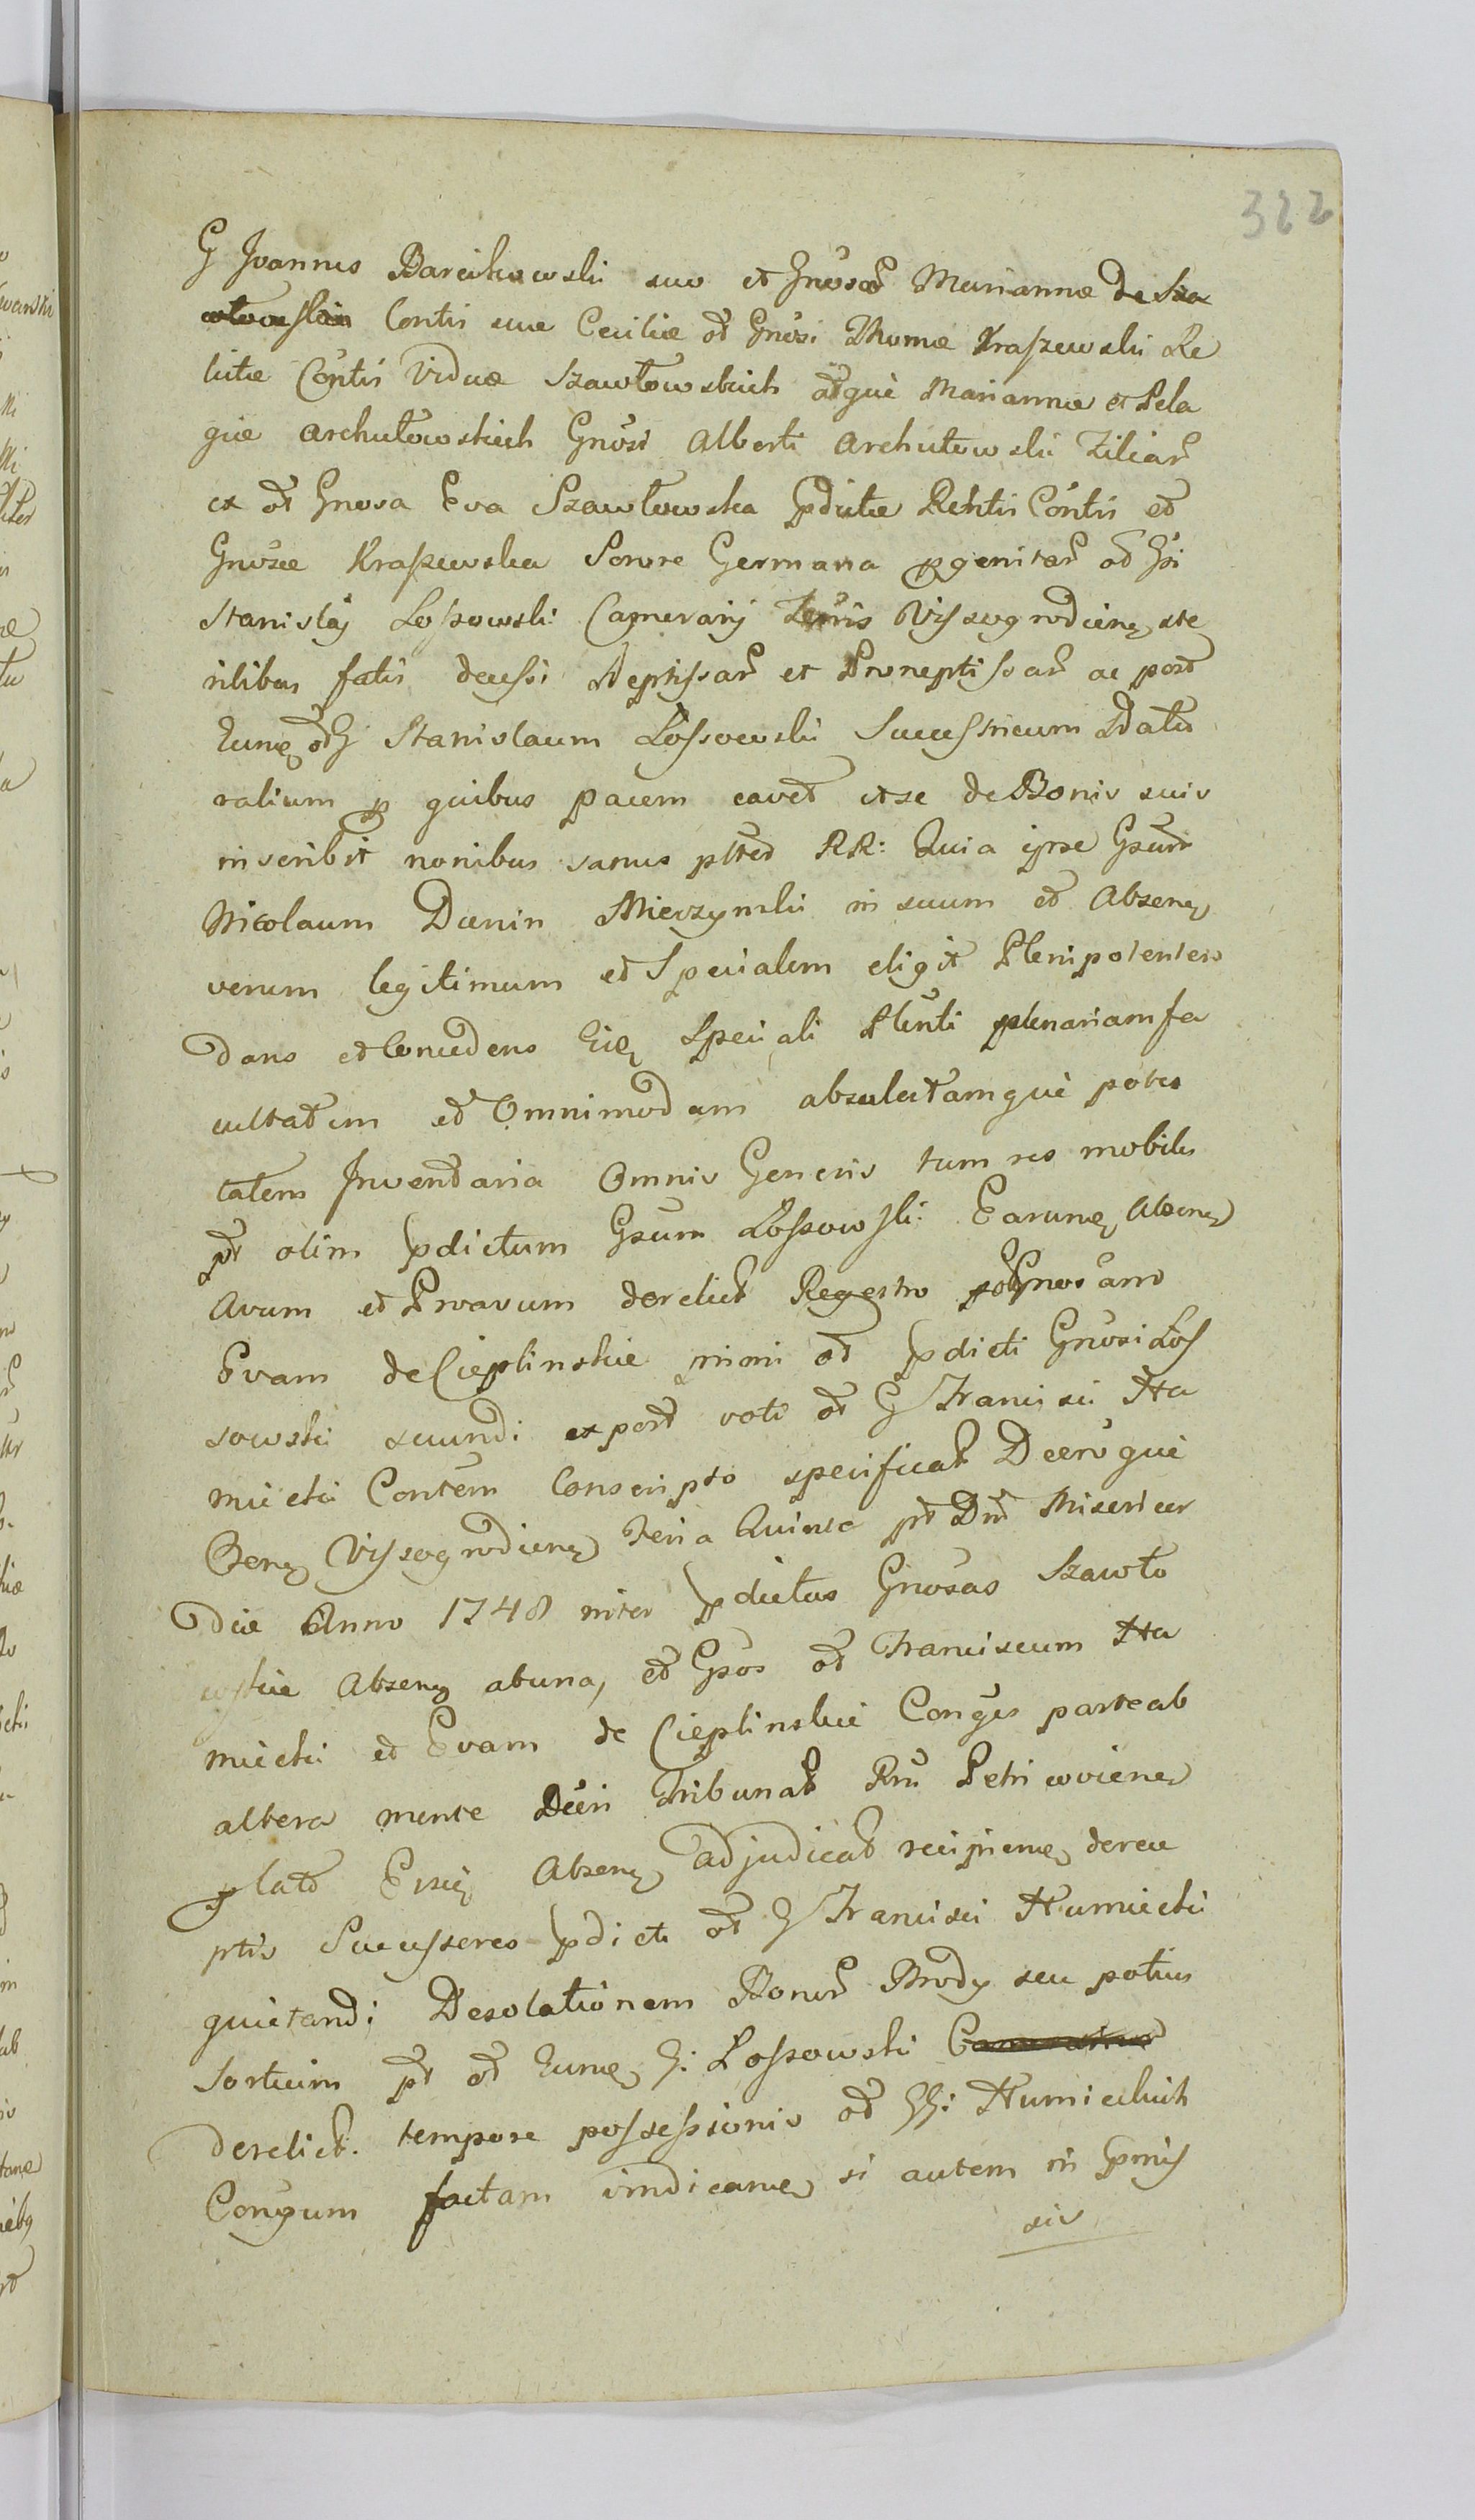 322
G Joannes Barcikowski suo et Gnosae Mariannae de Sza
Contis suae Ceciliae olim Gnosi Thomae Kraszewski Re
lictae Contis Viduae Szawłowskich atque Mariannae et Pela
giae Archutowskich Gnosi Alberti Archutowski Filiar
ex olt Gnosa Eva Szawłowska pdictae Rehtis Contis et
Gnosae Kraszewska Sorore Germana pgenitar olt Gsi
Stanislaj Lossowski Camerarij Terris Vyssogrodien ste
rilibus fatis decessi Neptissar et Proneptissar ac post
Eunq olt G Stanislaum Lossowski Successricum Natu
ralium p quibus pacem cavet et se de Bonis suis
inscribit nonibus sanus pltes RR: Quia ipse Gsum
Nicolaum Dunin Mierzynski in suum et Absenq
verum legitimum et Specialem eligit Plenipotentem
dans et Concedens Eiq Speciali Plenti plenariam fa
cultatem et Omnimodam absolutamque potes
tatem Inventaria Omnis Generis tum res mobiles
pt olim pdictum Gsum Lossowski Earunq Absenq
Avum et Proavum derelict Regestro pt Gnosam
Evam de Cieplinskie primi olt pdicti Gnosi Los
sowski secundi ex post voti olt G Francisci Hu
miecki Contem Conscripto specificat Decro que
Cenq Vyssogrodienq Feria Quinta pt Dni Misericor
diae Anno 1748 inter pdictas Gnosas Szawło
wskie Absenq ab una, et Gsos olt Franciscum Hu
miecki et Evam de Cieplinskie Conges parte ab
altera mente Decri Tribunat Rni Petricovienq
plato Eisq Absenq adjudicat recipienq de rece
ptis Successores pdicti olt G Francisci Humiecki
quietandi Desolationem Bonor Brody seu potius
Sortium pt olt Eunq G: Lossowski
derelict. tempore possessionis olt GG: Humieckich
Congum factam vindicanq si autem in pmis
sis